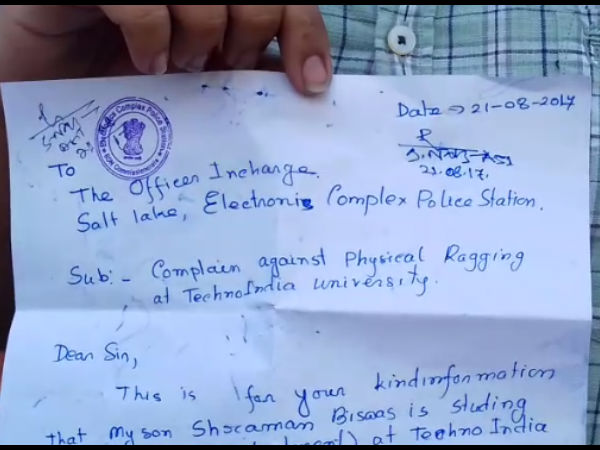 Date → 21-08-2017
21.08.17.
To
The Officer Incharge.
Salt lake, Electronic Complex Police Station.
Sub:- Complain against Physical Ragging
at TechnoIndia university.
Dear Sir,
This is for your kindinformation
that my son Biswas is studing
at Techno India